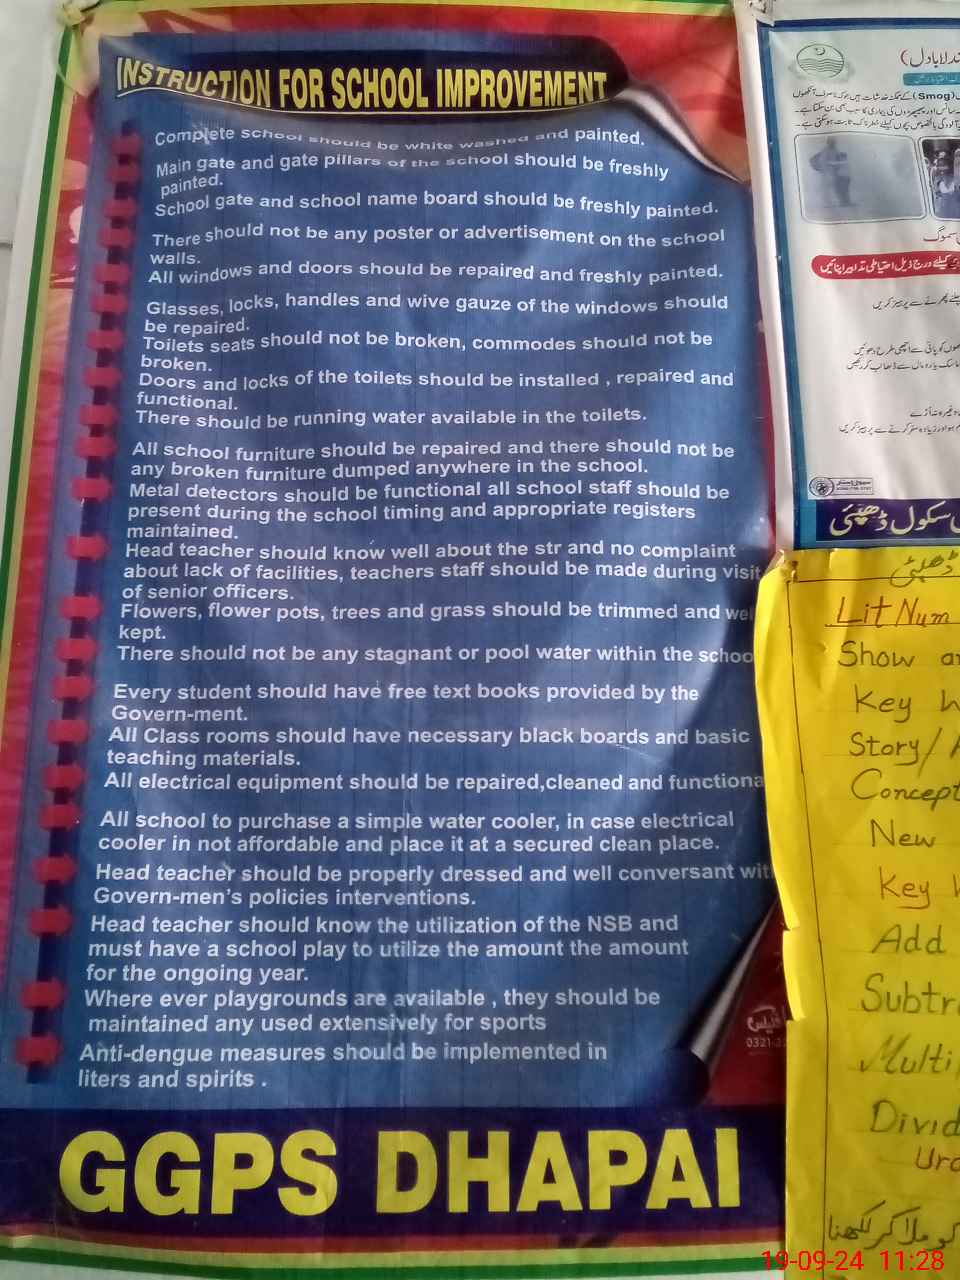 INSTRUCTION FOR SCHOOL IMPROVEMENT
Complete school should be white washed and painted.
Main gate and gate pillars of the school should be freshly
painted.
School gate and school name board should be freshly painted.
There should not be any poster or advertisement on the school
walls.
All windows and doors should be repaired and freshly painted.
Glasses, locks, handles and wive gauze of the windows should
be repaired.
Toilets seats should not be broken, commodes should not be
broken.
Doors and locks of the toilets should be installed , repaired and
functional.
There should be running water available in the toilets.
All school furniture should be repaired and there should not be
any broken furniture dumped anywhere in the school.
Metal detectors should be functional all school staff should be
present during the school timing and appropriate registers
maintained.
Head teacher should know well about the str and no complaint
about lack of facilities, teachers staff should be made during visit
of senior officers.
Flowers, flower pots, trees and grass should be trimmed and wel
kept.
There should not be any stagnant or pool water within the schoo
Every student should have free text books provided by the
Govern-ment.
All Class rooms should have necessary black boards and basic
teaching materials.
All electrical equipment should be repaired,cleaned and functiona
All school to purchase a simple water cooler, in case electrical
cooler in not affordable and place it at a secured clean place.
Head teacher should be properly dressed and well conversant wit
Govern-men's policies interventions.
Head teacher should know the utilization of the NSB and
must have a school play to utilize the amount the amount
for the ongoing year.
Where ever playgrounds are available , they should be
maintained any used extensively for sports
Anti-dengue measures should be implemented in
liters and spirits .
0321-
GGPS DHAPAI
(Smog)
سموگ
کیلئے درج ذیل احتیاطی تدابیر اپنائیں
سکول ڈھپئی
Lit Num
Show
Key
Story/
Concept
New
Key
Add
Subtr
Multi
Divid
Ur
کو ملا کر لکھنا
19-09-24 11:28